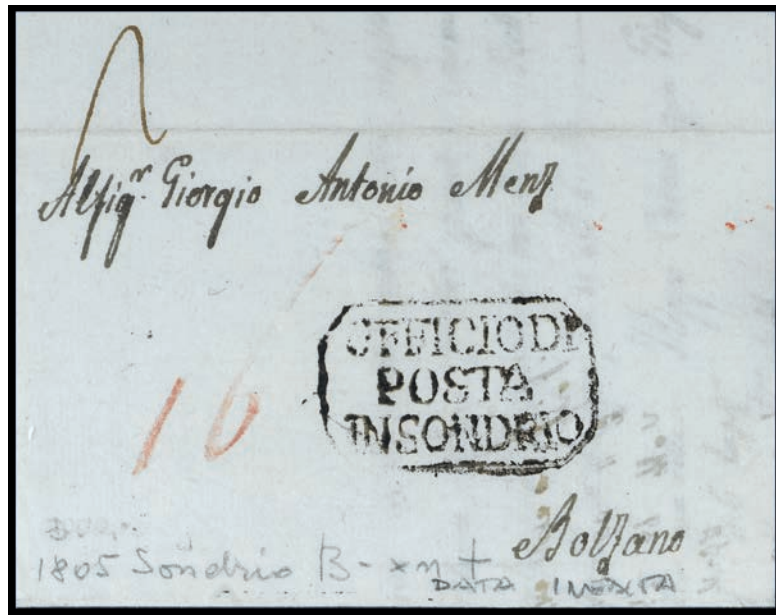 Al Sig.r Giorgio Antonio Menz
16
OFFICIO DI
POSTA
IN SONDRIO
Bolzano
1805 Sondrio
DATA INEXTA